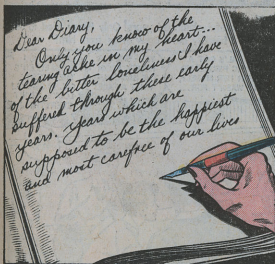 Dear Diary,
Only you know of the
tearing ache in my heart...
of the bitter loneliness I have
suffered through these early
years. years which are
supposed to be the happiest
and most carefree of our lives